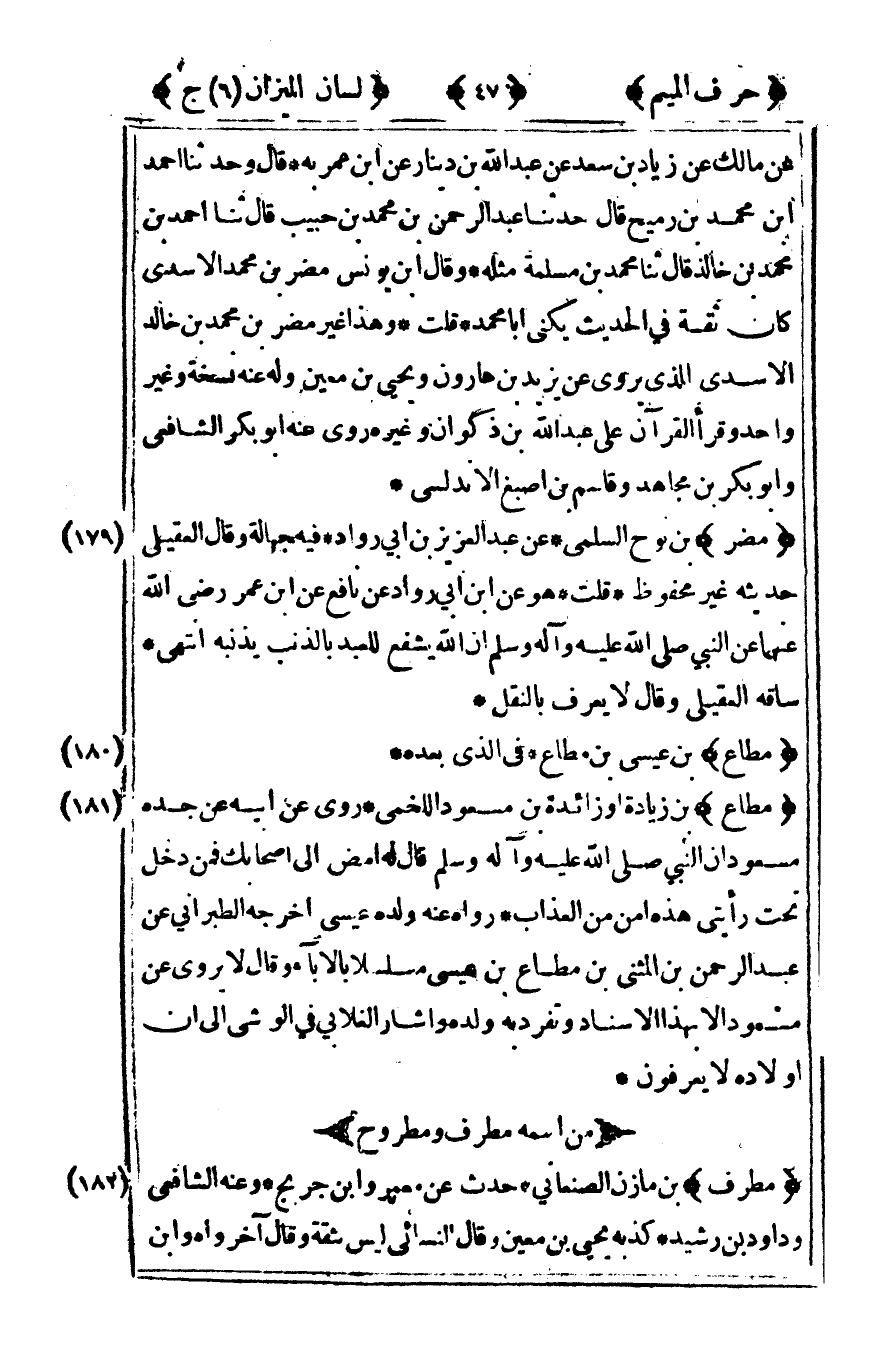 ﴿حرف الميم﴾ ﴿٤٧﴾ ﴿لسان الميزان (٦) ج﴾
عن مالك عن زياد بن سعد عن عبد الله بن دينار عن ابن عمر به * قال وحدثنا احمد
ابن محمد بن رميح قال حدثنا عبد الرحمن بن محمد بن حبيب قال ثنا احمد بن
محمد بن خالد قال ثنا محمد بن مسلمة مثله * وقال ابن يونس مضر بن محمد الاسدى
كان ثقة في الحديث يكنى ابا محمد * قلت * وهذا غير مضر بن محمد بن خالد
الاسدى الذى يروى عن يزيد بن هارون ويحيى بن معين وله عنه نسخة وغير
واحد وقرأ القرآن على عبد الله بن ذكوان وغيره روى عنه ابو بكر الشافعى
وابو بكر بن مجاهد وقاسم بن اصبغ الاندلسى *
﴿ مضر ﴾ بن نوح السلمى * عن عبد العزيز بن ابي رواد * فيه جهالة وقال العقيلى (١٧٩)
حديثه غير محفوظ * قلت * هو عن ابن ابي رواد عن نافع عن ابن عمر رضى الله
عنهما عن النبي صلى الله عليه وآله وسلم ان الله يشفع للعبد بالذنب يذنبه انتهى *
ساقه العقيلى وقال لا يعرف بالنقل *
﴿ مطاع ﴾ بن عيسى بن مطاع * فى الذى بعده * (١٨٠)
﴿ مطاع ﴾ بن زيادة او زائدة بن مسعود اللخمى * روى عن أبيه عن جده (١٨١)
مسعود ان النبي صلى الله عليه وآله وسلم قال له امض الى اصحابك فمن دخل
تحت رأيتى هذه امن من العذاب * رواه عنه ولده عيسى اخرجه الطبراني عن
عبد الرحمن بن المثنى بن مطاع بن عيسى مسلسلا بالاباء وقال لا يروى عن
مسعود الا بهذا الاسناد وتفرد به ولده واشار العلابي في الوشى الى ان
اولاده لا يعرفون *
﴿من اسمه مطرف ومطروح﴾
﴿ مطرف ﴾ بن مازن الصنعاني * حدث عن معمر وابن جريج * وعنه الشافعى (١٨٢)
وداود بن رشيد * كذبه يحيى بن معين وقال النسائى ليس بثقة وقال آخر واه وابن